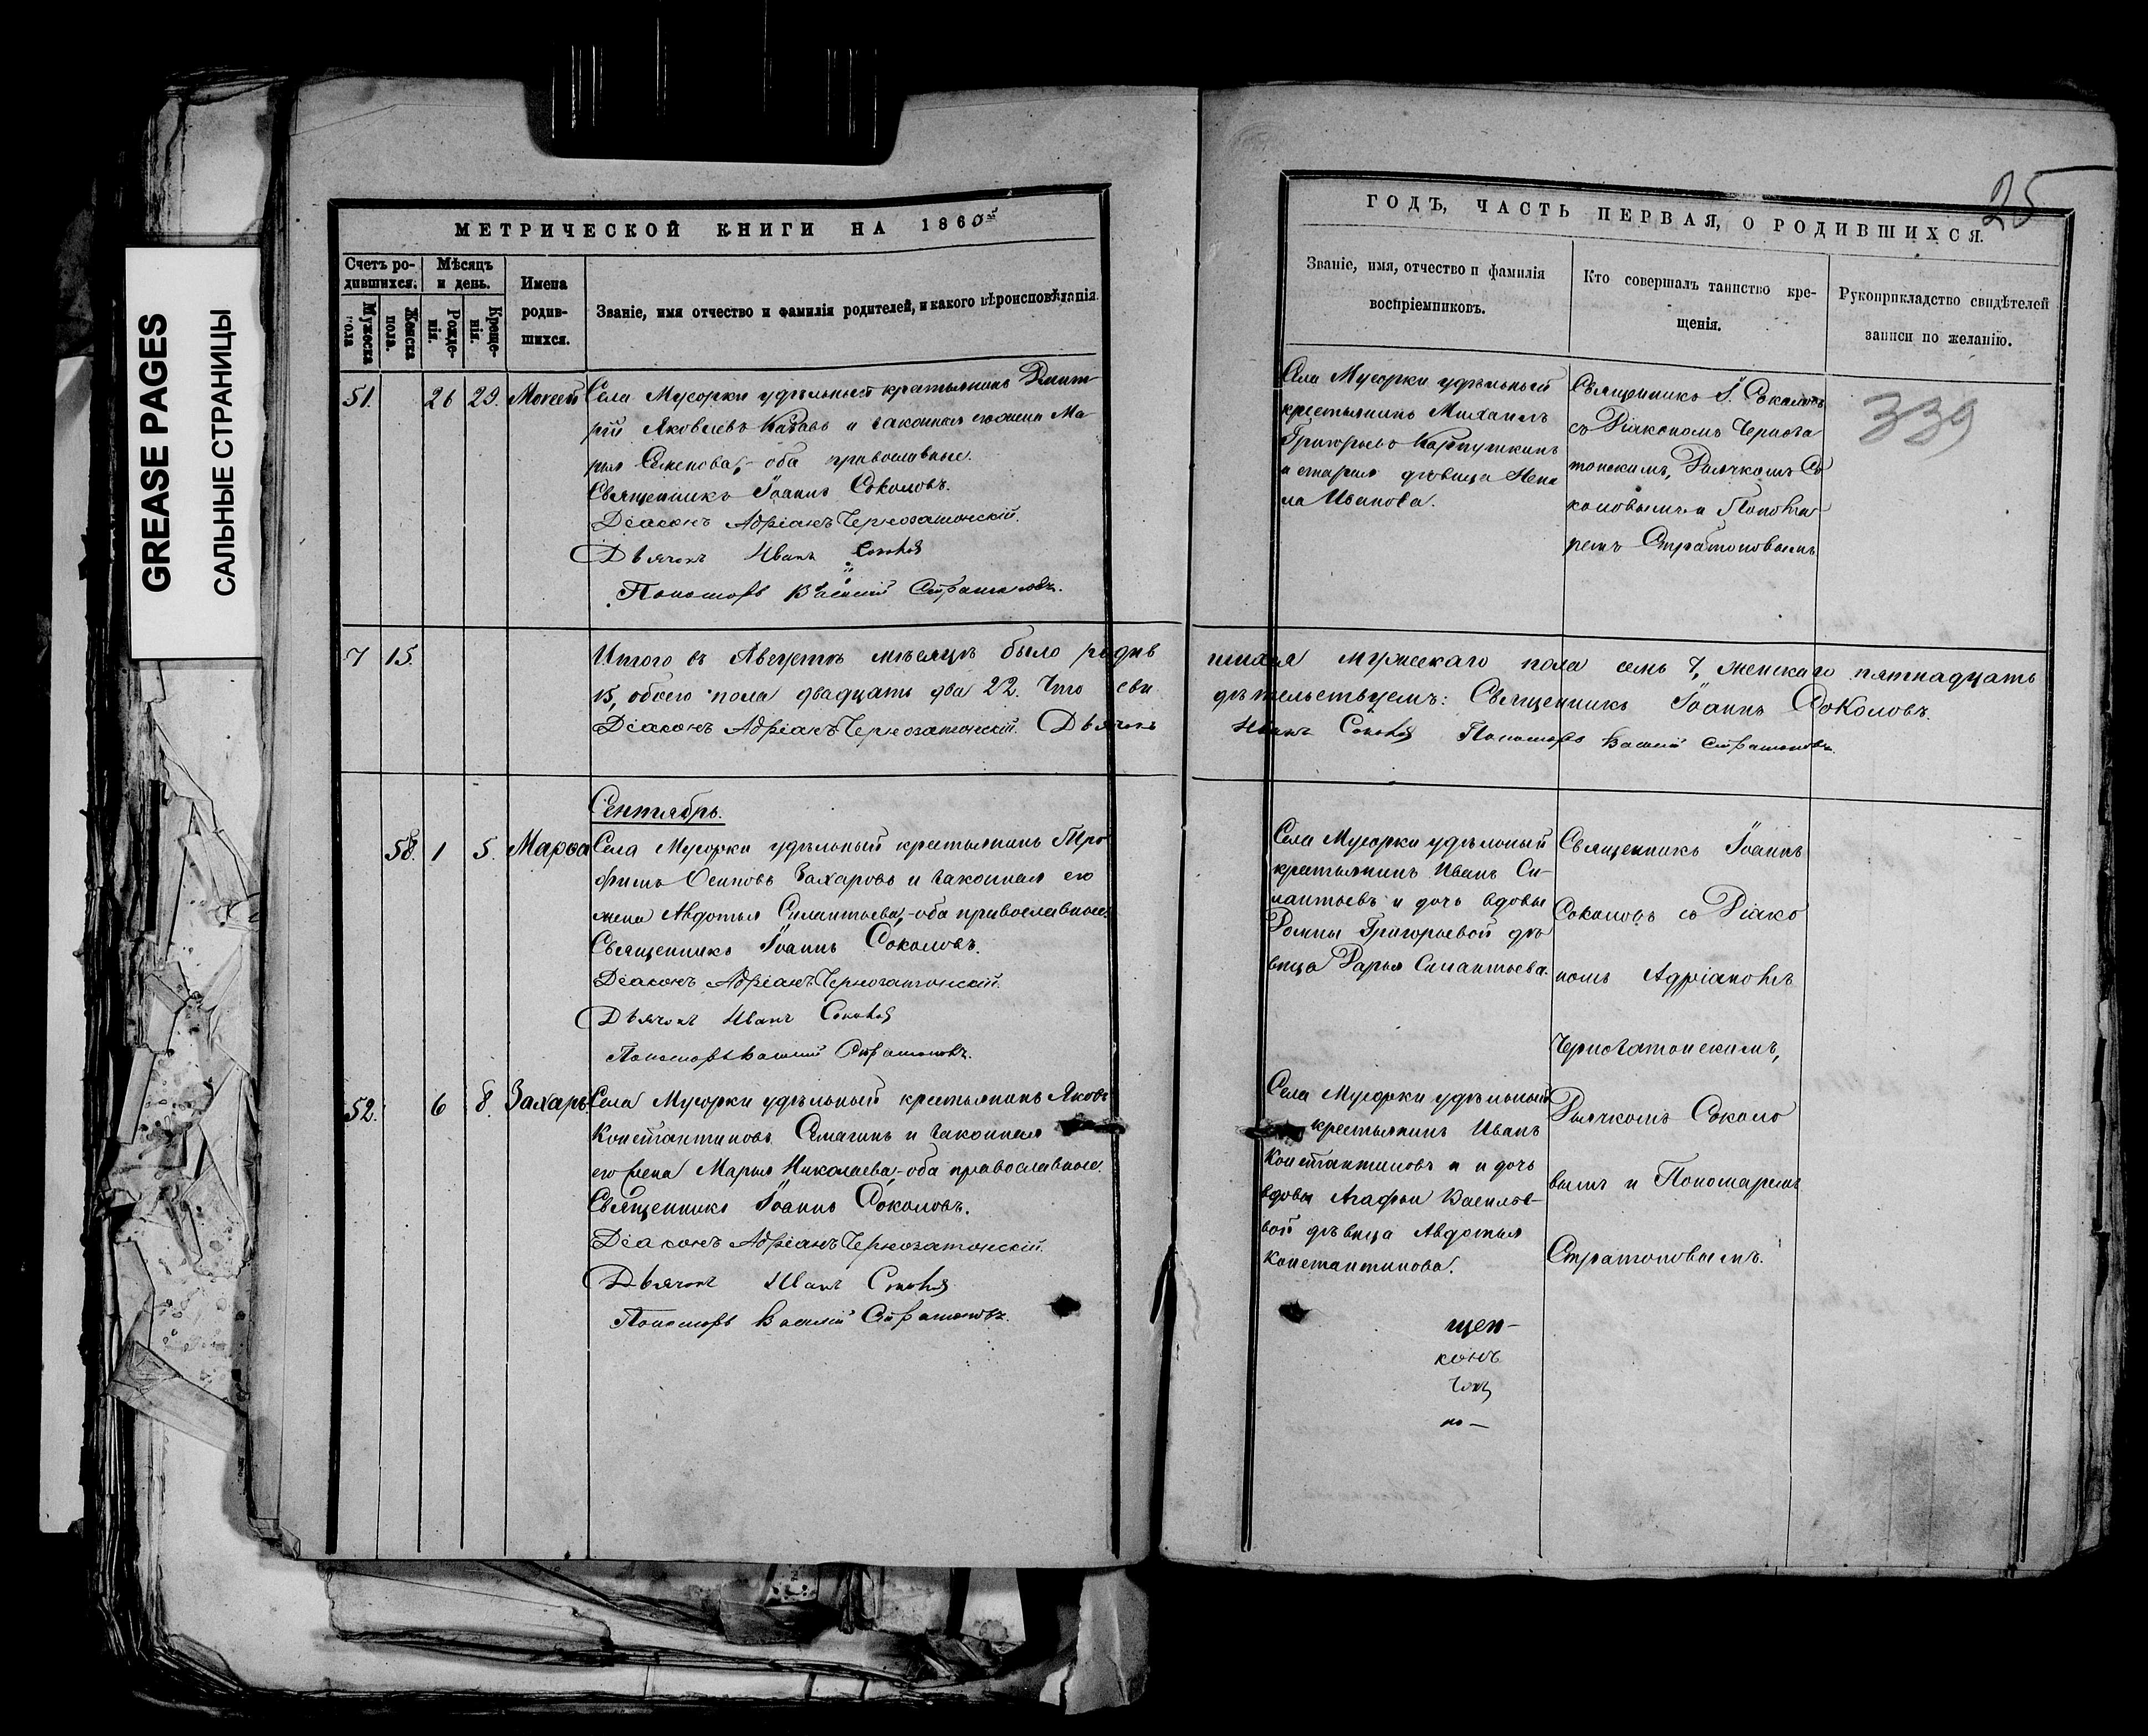 GREASE PAGES
САЛЬНЫЕ СТРАНИЦЫ
МЕТРИЧЕСКОЙ КНИГИ НА 1860й
Счетъ родившихся.
Мужеска пола
Женска пола.
Мѣсяцъ и день.
Рожденія.
Крещенія.
Имена родившихся.
Званіе, имя отчество и фамилія родителей, и какого вѣроисповѣданія.
51. 26 29. Моисей
Села Мусорки удѣльный крестьянинъ Дмит-
рій Яковлевъ и законная его жена Ма-
рья Семенова, оба православные.
Священникъ Іоаннъ Соколовъ.
Діаконъ Адріанъ Черногатонскій.
Дьячокъ Иванъ Соколовъ
Пономарь Василій Стратоновъ.
7 15.
Итого въ Августѣ мѣсяцѣ было родив
15, обоего пола двадцать два 22. Что сви
Діаконъ Адріанъ Черногатонскій. Дьячокъ
Сентябрь.
58. 1 5. Марѳа
Села Мусорки удѣльный крестьянинъ Тро
фимъ Осиповъ Захаровъ и законная его
жена Авдотья Силантьева, оба православные.
Священникъ Іоаннъ Соколовъ.
Діаконъ Адріанъ Черногатонскій.
Дьячокъ Иванъ Соколовъ
Пономарь Василій Стратоновъ.
52. 6 8. Захаръ
Села Мусорки удѣльный крестьянинъ Яковъ
Константиновъ Семагинъ и законная
его жена Марья Николаева, оба православные.
Священникъ Іоаннъ Соколовъ.
Діаконъ Адріанъ Черногатонскій.
Дьячокъ Иванъ Соколовъ
Пономарь Василій Стратоновъ.
25
ГОДЪ, ЧАСТЬ ПЕРВАЯ, О РОДИВШИХСЯ.
Званіе, имя, отчество и фамилія
воспріемниковъ.
Кто совершалъ таинство кре-
щенія.
Рукоприкладство свидѣтелей
записи по желанію.
Села Мусорки удѣльный
крестьянинъ Михаилъ
Григорьевъ Карпушкинъ
и старая дѣвица
ла Иванова.
Священникъ І. Соколовъ
съ Діакономъ Чернога
тонскимъ, Дьячкомъ Со
коловымъ и Понома
ремъ Стратоновымъ
339
шихся мужескаго пола семь 7, женскаго пятнадцать
дѣтельствуемъ: Священникъ Іоаннъ Соколовъ.
Иванъ Соколовъ Пономарь Василій Стратоновъ.
Села Мусорки удѣльный
крестьянинъ Иванъ Си-
лантьевъ и дочь вдовы
Домны Григорьевой дѣ
вица Дарья Силантьева.
Священникъ Іоаннъ
Соколовъ съ Діако
номъ Адріаномъ
Черногатонскимъ,
Дьячкомъ Соколо
вымъ и Пономаремъ
Стратоновымъ.
Села Мусорки удѣльный
крестьянинъ Иванъ
Константиновъ и и дочь
вдовы Агафьи Василье-
вой дѣвица Авдотья
Константинова.
щен-
конъ
чокъ
но-